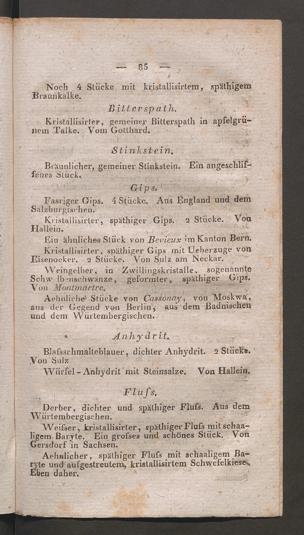 — 85 —
Noch 4 Stücke mit kristallisirtem, späthigem
Braunkalke.
Bitterspath.
Kristallisirter, gemeiner Bitterspath in apfelgrü-
nem Talke. Vom Gotthard.
Stinkstein.
Bräunlicher, gemeiner Stinkstein. Ein angeschlif-
fenes Stück.
Gips.
Fasriger Gips. 4 Stücke. Aus England und dem
Salzburgischen.
Kristallisirter, späthiger Gips. 2 Stücke. Von
Hallein.
Ein ähnliches Stück von Bevieux im Kanton Bern.
Kristallisirter, späthiger Gips mit Ueberzuge von
Eisenocker. 2 Stücke. Von Sulz am Neckar.
Weingelber, in Zwillingskristalle, sogenannte
Schwalbenschwänze, geformter, späthiger Gips.
Von Montmartre.
Aehnliche Stücke von Cassonay, von Moskwa,
aus der Gegend von Berlin, aus dem Badnischen
und dem Würtembergischen.
Anhydrit.
Blassschmalteblauer, dichter Anhydrit. 2 Stücke.
Von Sulz
Würfel-Anhydrit mit Steinsalze. Von Hallein.
Fluſs.
Derber, dichter und späthiger Fluſs. Aus dem
Würtembergischen.
Weiſser, kristallisirter, späthiger Fluſs mit schaa-
ligem Baryte. Ein grosses und schönes Stück. Von
Gersdorf in Sachsen.
Aehnlicher, späthiger Fluſs mit schaaligem Ba-
ryte und aufgestreutem, kristallisirtem Schwefelkiese.
Eben daher.